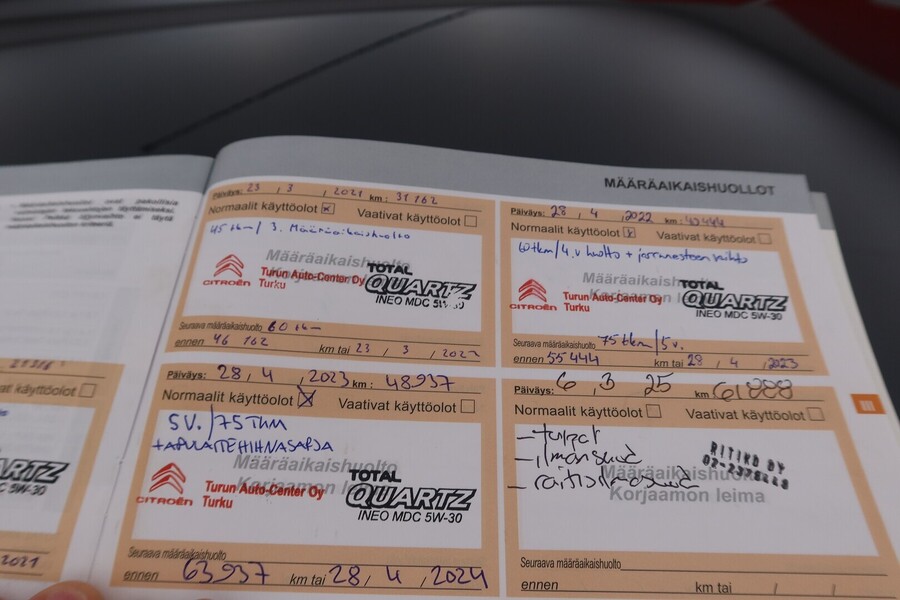 MÄÄRÄAIKAISHUOLLOT
Päiväys: 23 / 3 / 2021 km: 31 162
Normaalit käyttöolot ☒ Vaativat käyttöolot ☐
45 tkm / 3. Määräaikaishuolto
Määräaikaishuolto
Korjaamon leima
CITROËN
Turun Auto-Center Oy
Turku
TOTAL
QUARTZ
INEO MDC 5W-30
Seuraava määräaikaishuolto 60 tkm
ennen 46 162 km tai 23 / 3 / 2022
Päiväys: 28 / 4 / 2022 km: 40444
Normaalit käyttöolot ☒ Vaativat käyttöolot ☐
60tkm/4.v huolto + jarrunesteen vaihto
Määräaikaishuolto
Korjaamon leima
CITROËN
Turun Auto-Center Oy
Turku
TOTAL
QUARTZ
INEO MDC 5W-30
Seuraava määräaikaishuolto 75tkm/5v.
ennen 55444 km tai 28 / 4 / 2023
Päiväys: 28 / 4 / 2023 km: 48937
Normaalit käyttöolot ☒ Vaativat käyttöolot ☐
5V. / 75TKM
+APULAITEHIHNASARJA
Määräaikaishuolto
Korjaamon leima
CITROËN
Turun Auto-Center Oy
Turku
TOTAL
QUARTZ
INEO MDC 5W-30
Seuraava määräaikaishuolto
ennen 63937 km tai 28 / 4 / 2024
Päiväys: 6 / 3 25 km 61888
Normaalit käyttöolot ☐ Vaativat käyttöolot ☐
Määräaikaishuolto
Korjaamon leima
Seuraava määräaikaishuolto
ennen km tai / /
käyttöolot ☐
QUARTZ
MDC 5W-30
2021